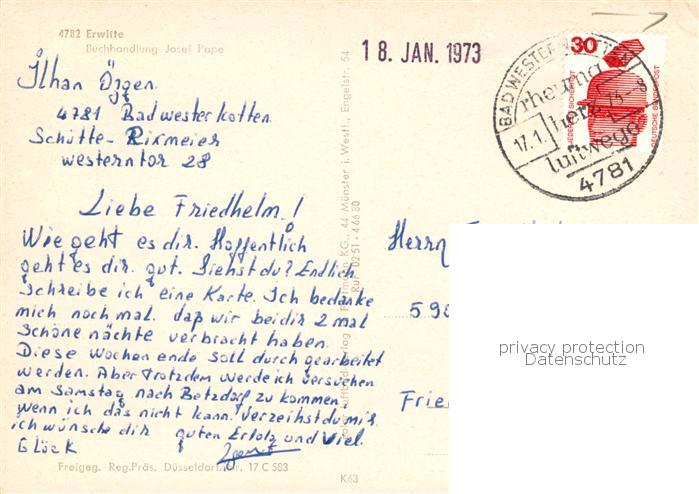 4782 Erwitte
Buchhandlung Josef Pape
18. JAN. 1973
BAD WESTERNKOTTEN
17.1.73-8
rheuma
herz
luftwege
4781
30
JEDERZEIT SICHERHEIT
DEUTSCHE BUNDESPOST
Ilhan Özgen.
4781 Bad westerkotten
Schütte-Rixmeier
Westerntor 28
Liebe Friedhelm!
Wie geht es dir. Hoffentlich
geht es dir gut. Siehst du? Endlich
schreibe ich eine Karte. Ich bedanke
mich noch mal. daß wir bei dir 2 mal
schöne nächte verbracht haben.
Diese Wochen ende soll durch gearbeitet
werden. Aber Trotzdem werde ich versuchen
am Samstag nach Betzdorf zu kommen
wenn ich das nicht kann. Verzeihst du mir.
ich wünsche dir guten Erfolg und Viel.
Glück
Herrn
590
Fried
44 Münster i. Westf., Engelstr. 54
Ruf 0251-46680
Freigeg. Reg.Präs. Düsseldorf, Nr. 17 C 583
K63
privacy protection
Datenschutz